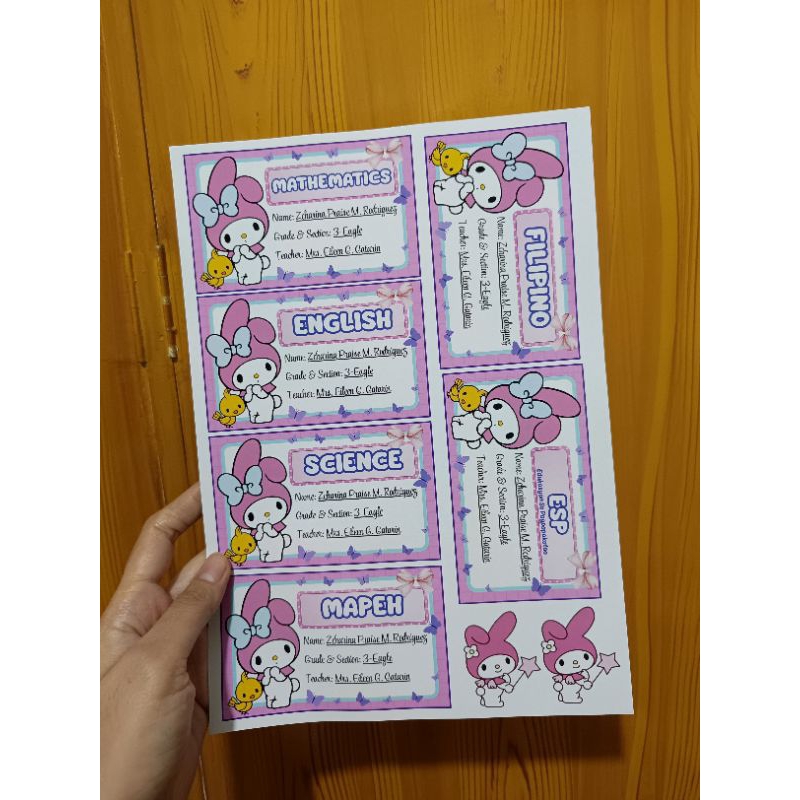 MATHEMATICS
Name: Zcharina Praise M. Rodriguez
Grade & Section: 3-Eagle
Teacher: Mrs. Eileen G. Gatarin
ENGLISH
Name: Zcharina Praise M. Rodriguez
Grade & Section: 3-Eagle
Teacher: Mrs. Eileen G. Gatarin
SCIENCE
Name: Zcharina Praise M. Rodriguez
Grade & Section: 3-Eagle
Teacher: Mrs. Eileen G. Gatarin
MAPEH
Name: Zcharina Praise M. Rodriguez
Grade & Section: 3-Eagle
Teacher: Mrs. Eileen G. Gatarin
FILIPINO
Name: Zcharina Praise M. Rodriguez
Grade & Section: 3-Eagle
Teacher: Mrs. Eileen G. Gatarin
ESP
Edukasyon Sa Pagpapakatao
Name: Zcharina Praise M. Rodriguez
Grade & Section: 3-Eagle
Teacher: Mrs. Eileen G. Gatarin